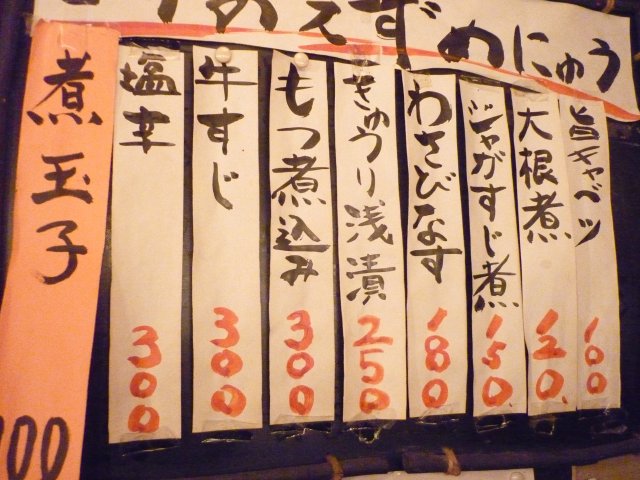 りあえずめにゅう
旨キャベツ 100
大根煮 120
ジャがすじ煮 150
わさびなす 180
きゅうり浅漬 250
もつ煮込み 300
牛すじ 300
塩辛 300
煮玉子 100